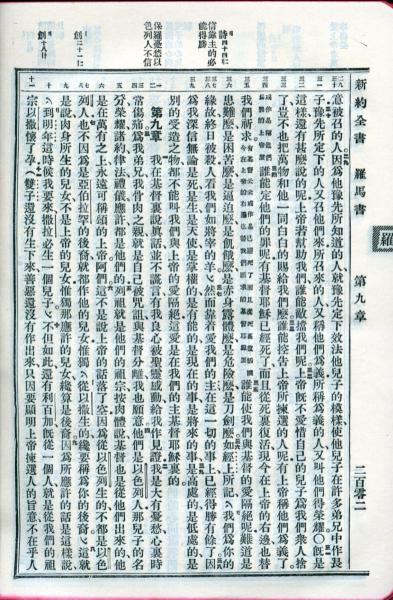 新約全書 羅馬書 第九章 二百零二
羅
意被召的人因為他豫先所知道的人就豫先定下效法他兒子的模樣使他兒子在許多弟兄中作長
子豫先所定下的人又召他們來所召來的人又稱他們為義所稱為義的人又叫他們得榮耀〇既是
這樣還有甚麼說的呢上帝若幫助我們誰能敵擋我們呢上帝既不愛惜自己的兒子為我們衆人捨
了豈不也把萬物和他一同白白的賜給我們麼誰能控告上帝所揀選的人呢有上帝稱他們為義了
誰能定他們的罪呢有基督耶穌已經死了而且從死裏復活現今在上帝的右邊也替
我們祈求誰能使我們與基督的愛隔絕呢難道是
患難麼是困苦麼是逼迫麼是飢餓麼是赤身露體麼是危險麼是刀劍麼如經上所記我們為你的
緣故終日被殺人看我們如將宰的羊然而靠着愛我們的主在這一切的事上已經得勝有餘了因
為我深信無論是死是生是天使是掌權的是有能的是現在的事是將來的事是高處的是低處的是
別的受造之物都不能叫我們與上帝的愛隔絕這愛是在我們的主基督耶穌裏的
第九章 我在基督裏說眞話並不謊言有我良心被聖靈感動給我作見證我是大有憂愁心裏時
常傷痛為我弟兄我骨肉之親就是自己被咒詛與基督分離我也願意他們是以色列人那兒子的名
分榮耀諸約律法禮儀應許都是他們的列祖就是他們的祖宗按肉體說基督也是從他們出來的他
是在萬有之上永遠可稱頌的上帝阿們這不是說上帝的話落了空因為從以色列生的不都是以色
列人也不因為是亞伯拉罕的後裔就都作他的兒女惟獨從以撒生的纔要稱為你的後裔這就
是說肉身所生的兒女不是上帝的兒女惟獨那應許的兒女纔算是後裔因為所應許的話是這樣說
到明年這時候我要來撒拉必生一個兒子不但如此還有利百加旣從一個人就是從我們的祖
宗以撒懷了孕雙子還沒有生下來善惡還沒有作出來只因要顯明上帝揀選人的旨意不在乎人
信靠主的必
能得勝
保羅憂愁以
色列人不信